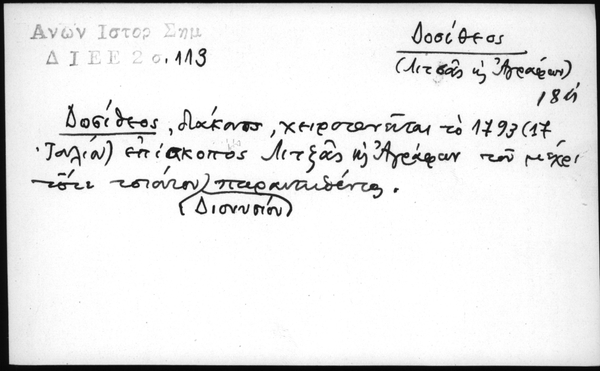 Ανων Ιστορ Σημ
Δ Ι Ε Ε 2 σ. 113
Δοσίθεος
(Λιτσᾶς κ Ἀγράφων)
Δοσίθεος, διάκονος, χειροτονεῖται τὸ 1793 (17
Ἰουλίου) ἐπίσκοπος Λιτζᾶς κ Ἀγράφων τοῦ μέχρι
τότε παραιτηθέντος.
(Διονυσίου)